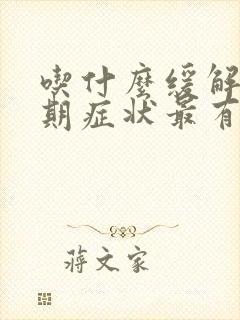 喫什麼緩解
期症狀最有
蔣文家